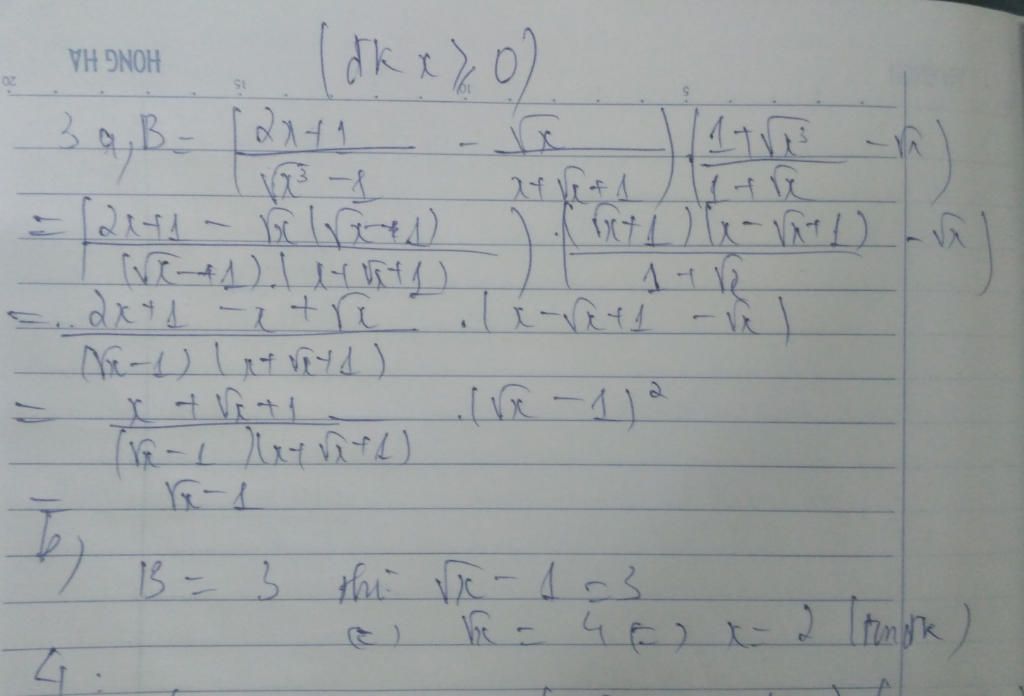 HONG HA
(đk x ⩾ 0)
20 15 10 5
3 a, B = (2x+1 / √x³ - 1 - √x / x+√x+1) . (1+√x³ / 1+√x - √x)
= (2x+1 - √x(√x-1) / (√x-1).(x+√x+1)) . ((√x+1)(x-√x+1) / 1+√x - √x)
= 2x+1 -x+√x / (√x-1)(x+√x+1) . (x-√x+1 -√x)
= x+√x+1 / (√x-1)(x+√x+1) . (√x-1)²
= √x-1
b,
B = 3 thì √x - 1 = 3
(=) √x = 4 (=) x = 2 (tmđk)
4.